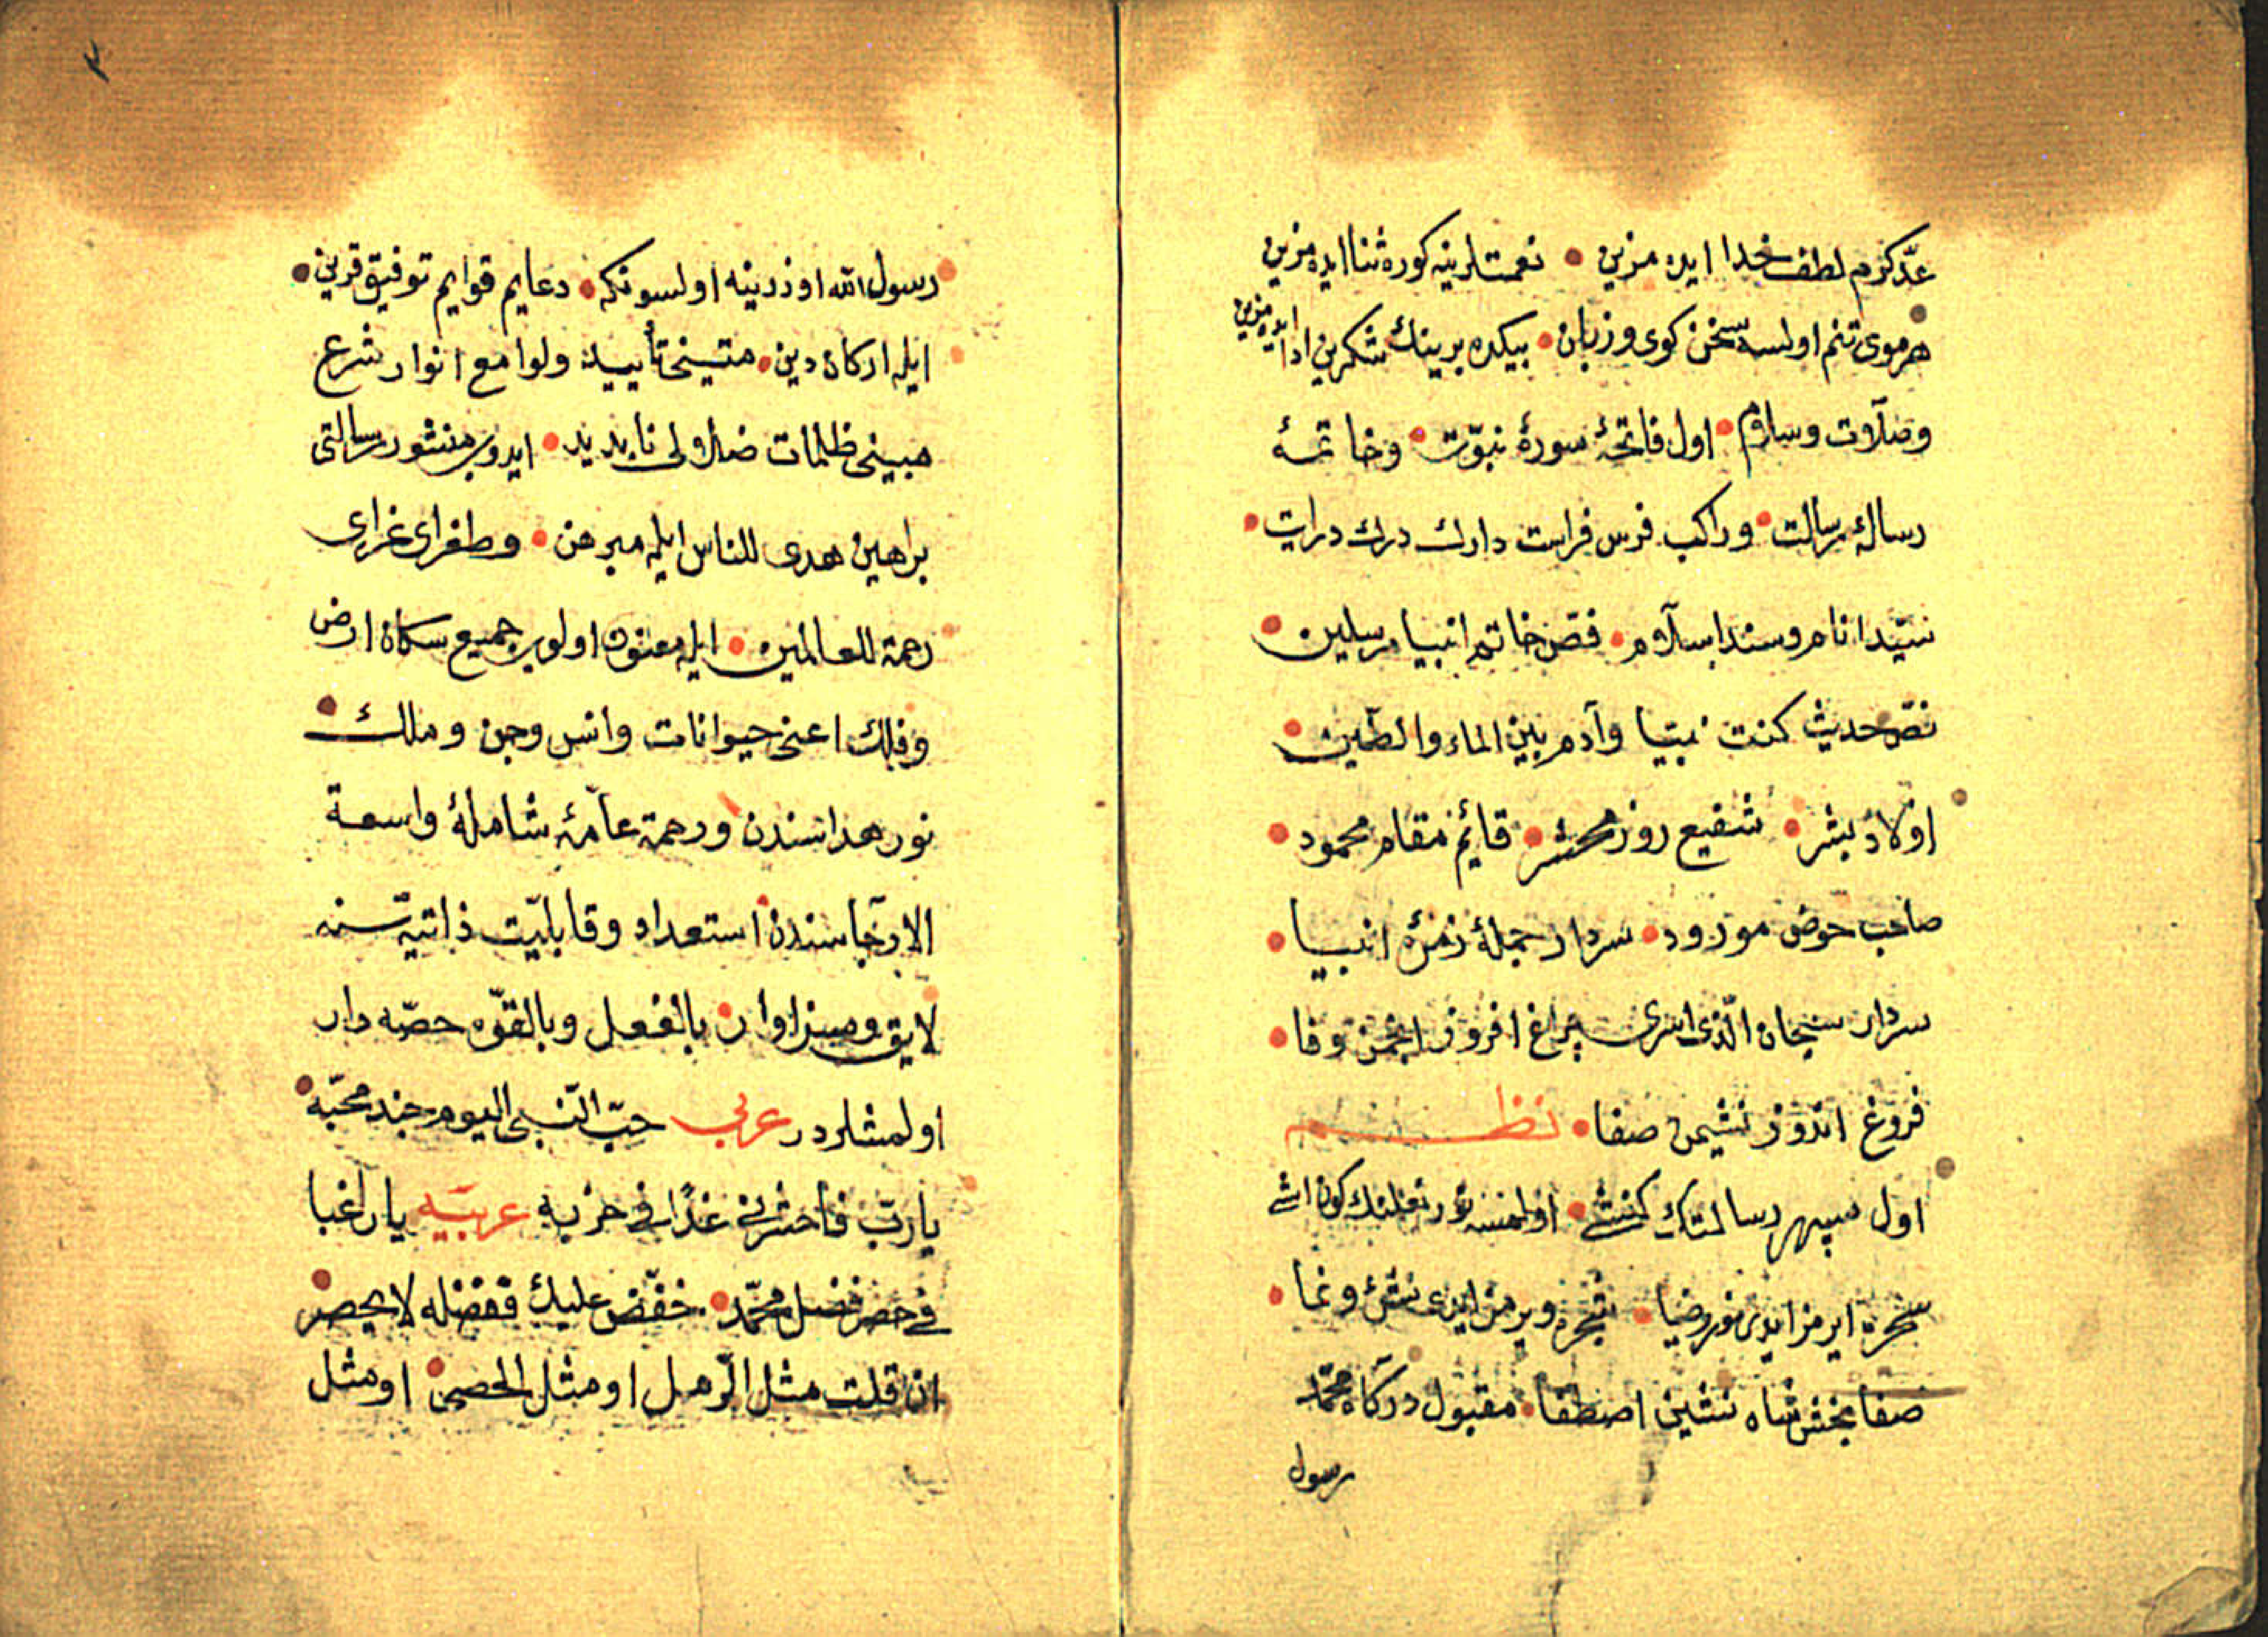 عدّ كرم لطف خدا ايده مزين • نعمتلرينه كوره ثنا ايده مزين
هر موى تنم اولسه سخن كوى و زبان • بيكده برينك شكرين ادا ايده مزين
وصلات وسلام • اول فاتحۀ سورۀ نبوّت • وخاتمۀ
رسالۀ رسالت • وراكب فرس فراست دارك درك درايت •
سيّد انام وسند اسلام • فصّ خاتم انبيا مرسلين •
نصّ حديث كنت نبيّا وآدم بين الماء والطّين •
اولاد بشر • شفيع روز محشر • قائم مقام محمود •
صاحب حوض مورود • سردار جملۀ زمرۀ انبيا •
سردار سبحان الّذى اسرى چراغ افروز انجمن وفا •
فروغ اندوز نشيمن صفا • نظم
اول سپهر رسالتك كنشى • اولمسه نور كون اشى
سخره ايرمز ايدى نور وضيا • شجره ويرمز ايدى نشئ ونما •
صفا بخش شاه نشين اصطفا • مقبول دركاه محمّد
رسول
٣
رسول الله اوزرينه اولسونكه • دعايم قوايم توفيق قرين •
ايله اركان دين • متينى تأييد ولوامع انوار شرع
مبينى ظلمات ضلالى نابديد • ايدوب منشور رسالتى
براهين هدى للناس ايله مبرهن • وطغراى غراى
رحمة للعالمين • ايله معنون اولوب جميع سكان ارض
وفلك اعنى حيوانات وانس وجن وملك •
نور هداسندن ورحمة عامّۀ شاملۀ واسعة
الارجاسندن استعداد وقابليّت ذاتيّه سنه
لايق وسزاوار • بالفعل وبالقوّه حصّه دار
اولمشلردر عربى حبّ النّبى اليوم جند محبّه •
يا ربّ فاحشرنى غدًا فى حزبه عربيّه يا راغبا
فى حصر فضل محمّد • خفّض عليك ففضله لا يحصر
ان قلت مثل الرّمل او مثل الحصى • او مثل